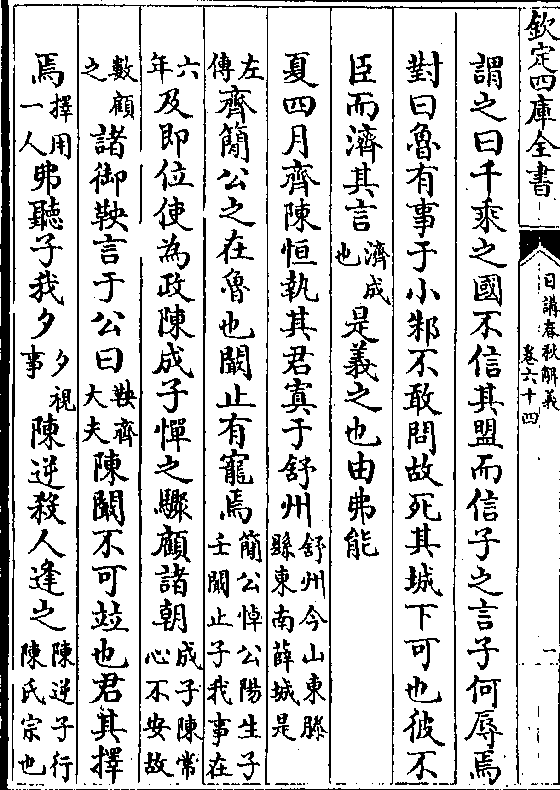 欽定四庫全書
日講春秋解義
卷六十四
謂之曰千乘之國不信其盟而信子之言子何辱焉
對曰魯有事于小邾不敢問故死其城下可也彼不
臣而濟其言濟成也是義之也由弗能
夏四月齊陳恒執其君寘于舒州舒州今山東滕縣東南薛城是
左傳齊簡公之在魯也闞止有寵焉簡公悼公陽生子壬闞止子我事在
六年及即位使為政陳成子憚之驟顧諸朝成子陳常心不安故
數顧之諸御鞅言于公曰鞅齊大夫陳闞不可竝也君其擇
焉擇用一人弗聽子我夕夕視事陳逆殺人逢之陳逆子行陳氏宗也